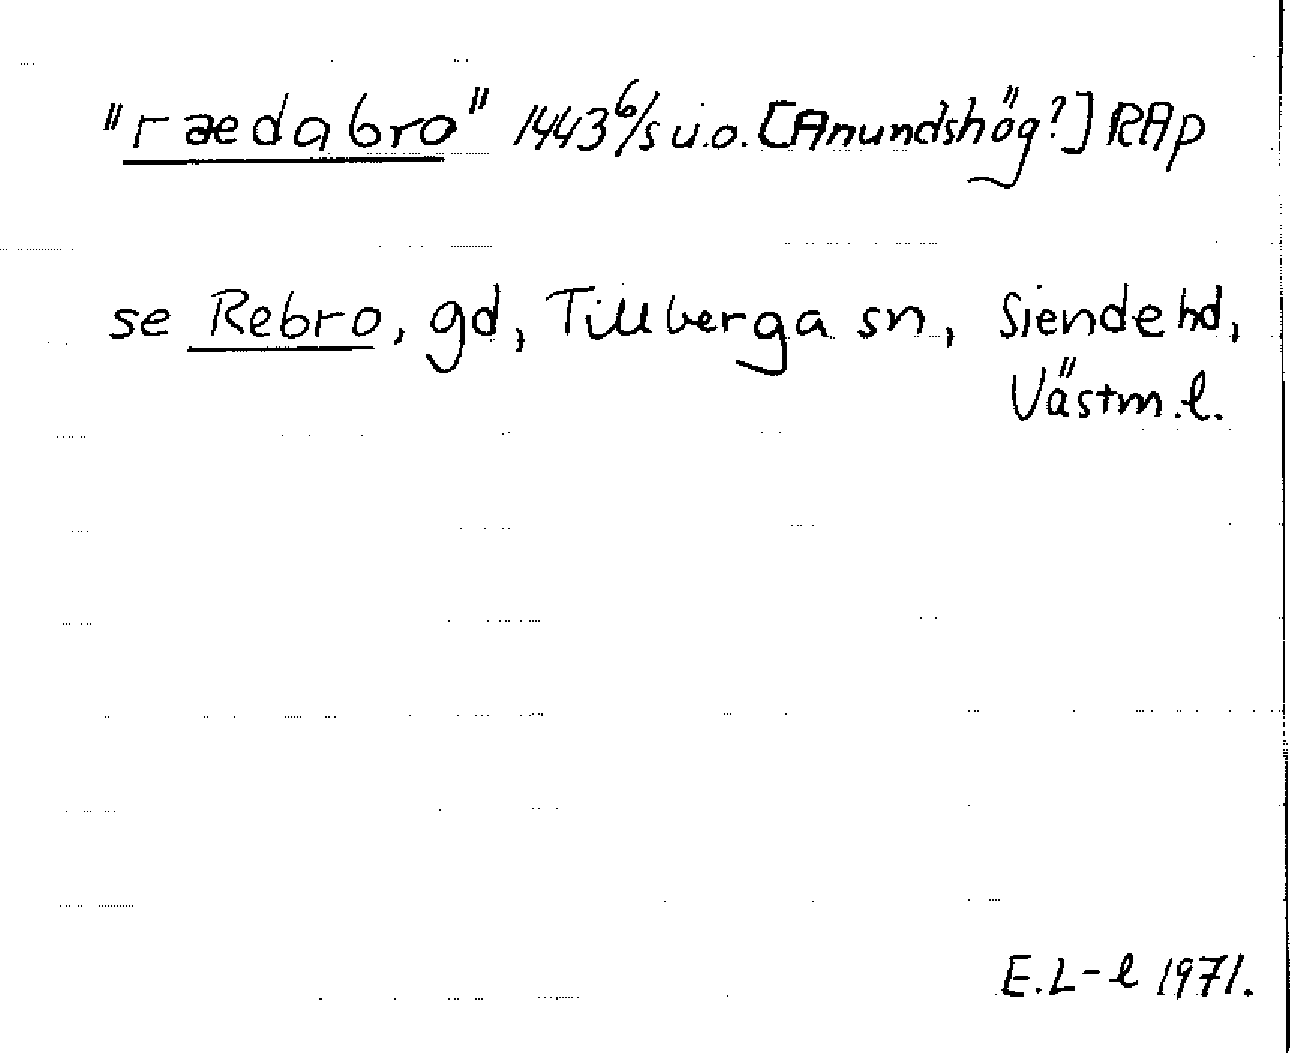 "rædabro" 1443 6/5 u.o. [Anundshög?] RAp
se Rebro, gd, Tillberga sn, Siende hd,
Västm.l.
E.L-l 1971.